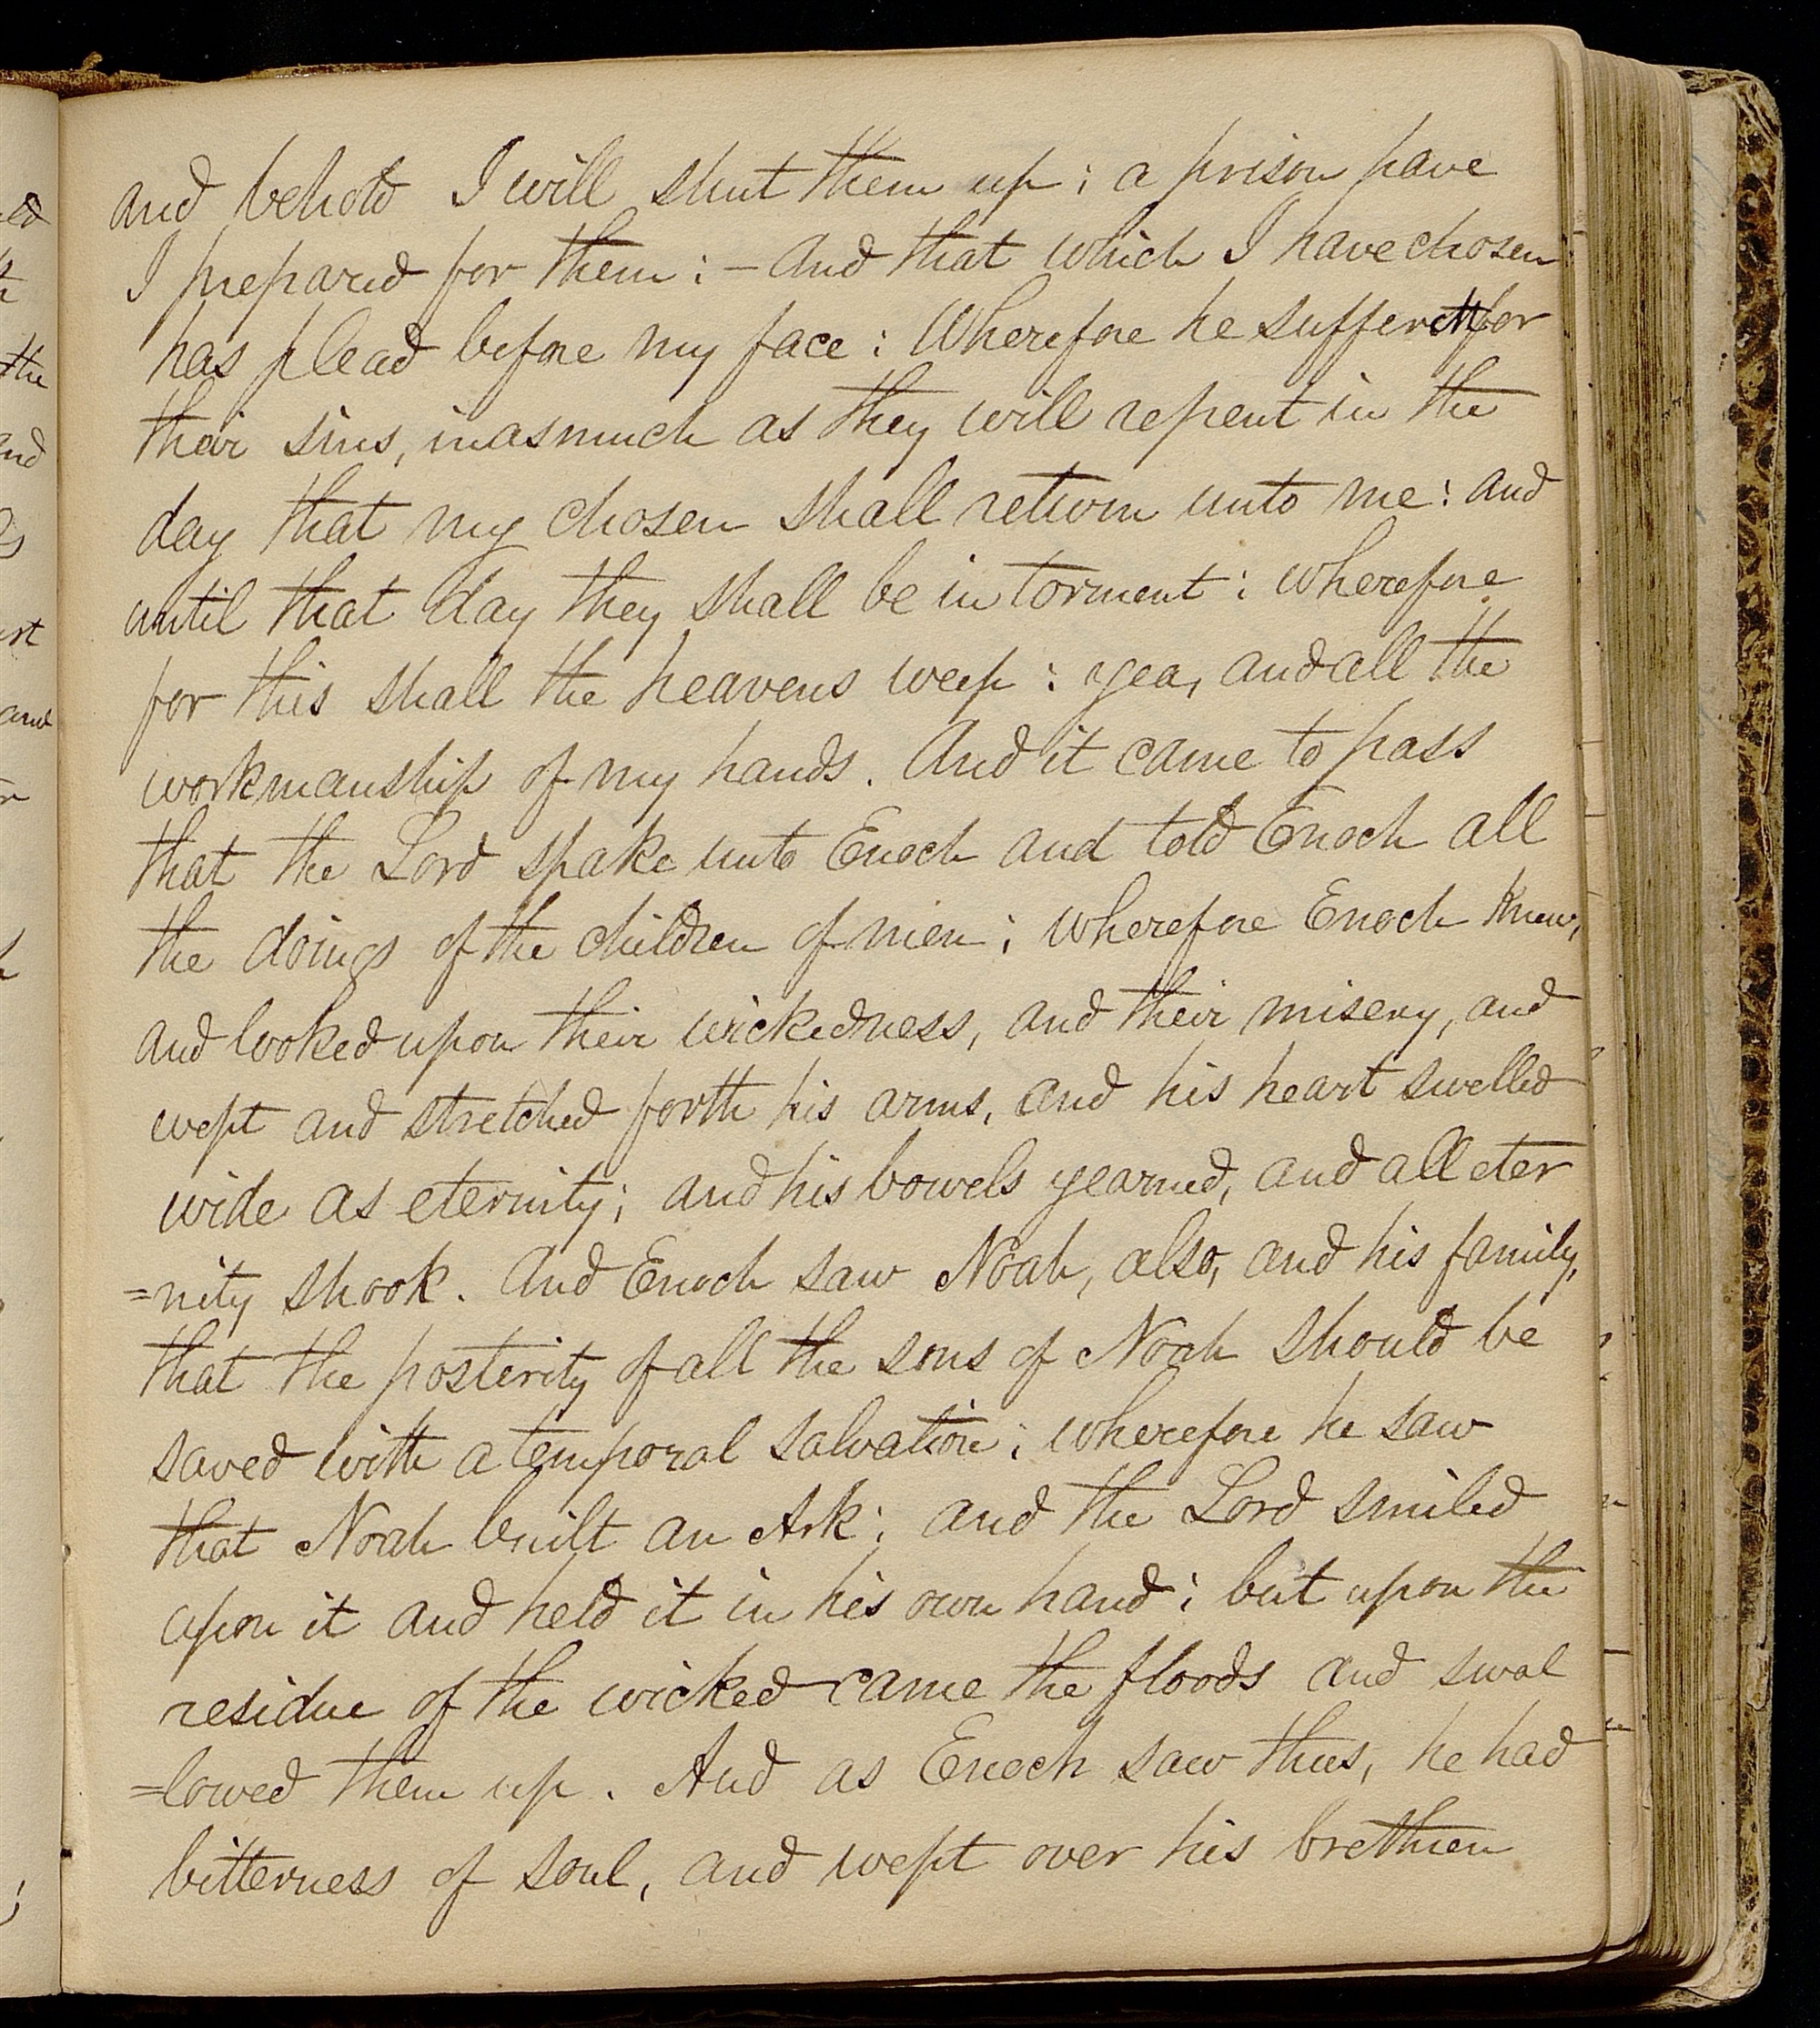 and behold I will shut them up; a prison have
I prepared for them:— and that which I have chosen
has plead before my face: Wherefore he suffereth for
their sins, inasmuch as they will repent in the
day that my chosen shall return unto me: and
until that day they shall be in torment: wherefore
for this shall the heavens weep: yea, and all the
workmanship of my hands. And it came to pass
that the Lord spake unto Enoch and told Enoch all
the doings of the children of men; wherefore Enoch knew,
and looked upon their wickedness, and their misery, and
wept and stretched forth his arms, and his heart swelled
wide as eternity; and his bowels yearned, and all eter
=nity shook. And Enoch saw Noah, also, and his family,
that the posterity of all the sons of Noah should be
saved with a temporal salvation; wherefore he saw
that Noah built an Ark; and the Lord smiled
upon it and held it in his own hand; but upon the
residue of the wicked came the floods and swal
=lowed them up. And as Enoch saw thus, he had
bitterness of soul, and wept over his brethren